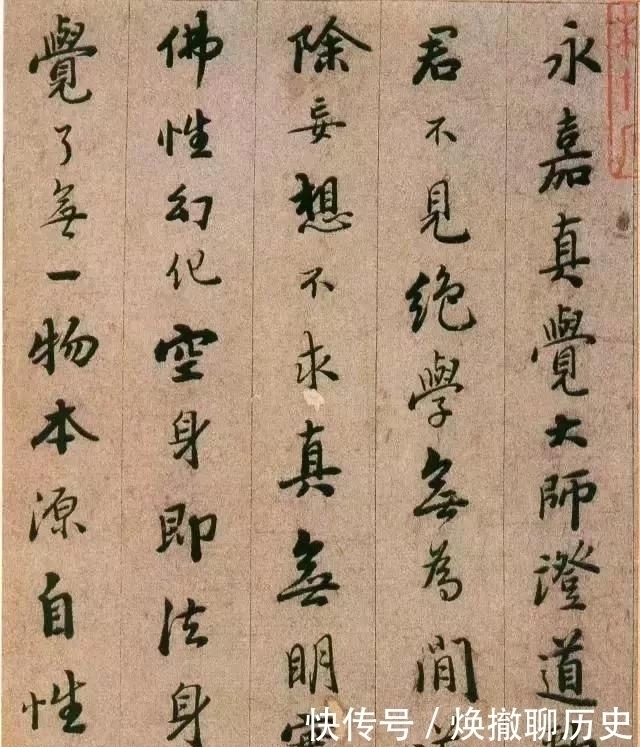 永嘉真覺大師澄道
君不見絕學無為閒
除妄想不求真無明
佛性幻化空身即法身
覺了無一物本源自性
快传号/焕撤聊历史